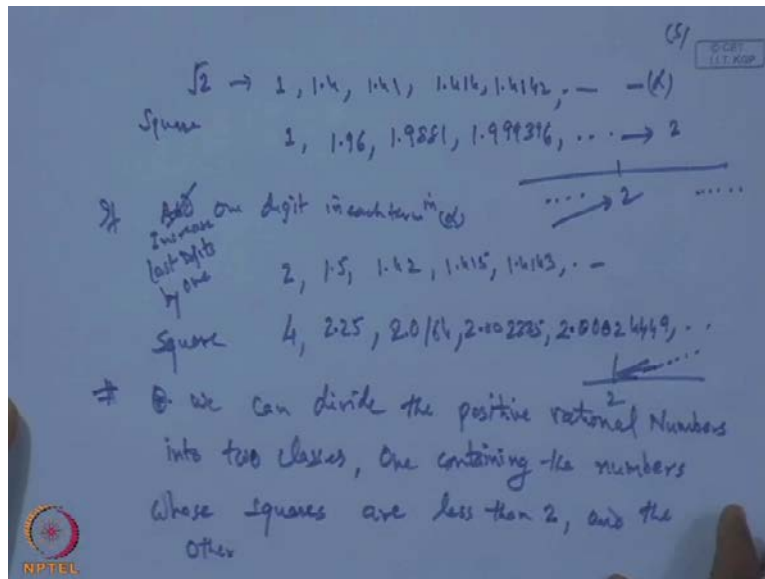 (5)
© CET
I.I.T. KGP
√2 → 1, 1.4, 1.41, 1.414, 1.4142, — –(α)
Square 1, 1.96, 1.9881, 1.999396, ... → 2
.... → 2 .....
If Add one digit in each term in (α)
Increase
last digits
by one
2, 1.5, 1.42, 1.415, 1.4143, . –
Square 4, 2.25, 2.0164, 2.002225, 2.00024449, ..
2
⇒ we can divide the positive rational Numbers
into two classes, One containing the numbers
whose squares are less than 2, and the
other
NPTEL